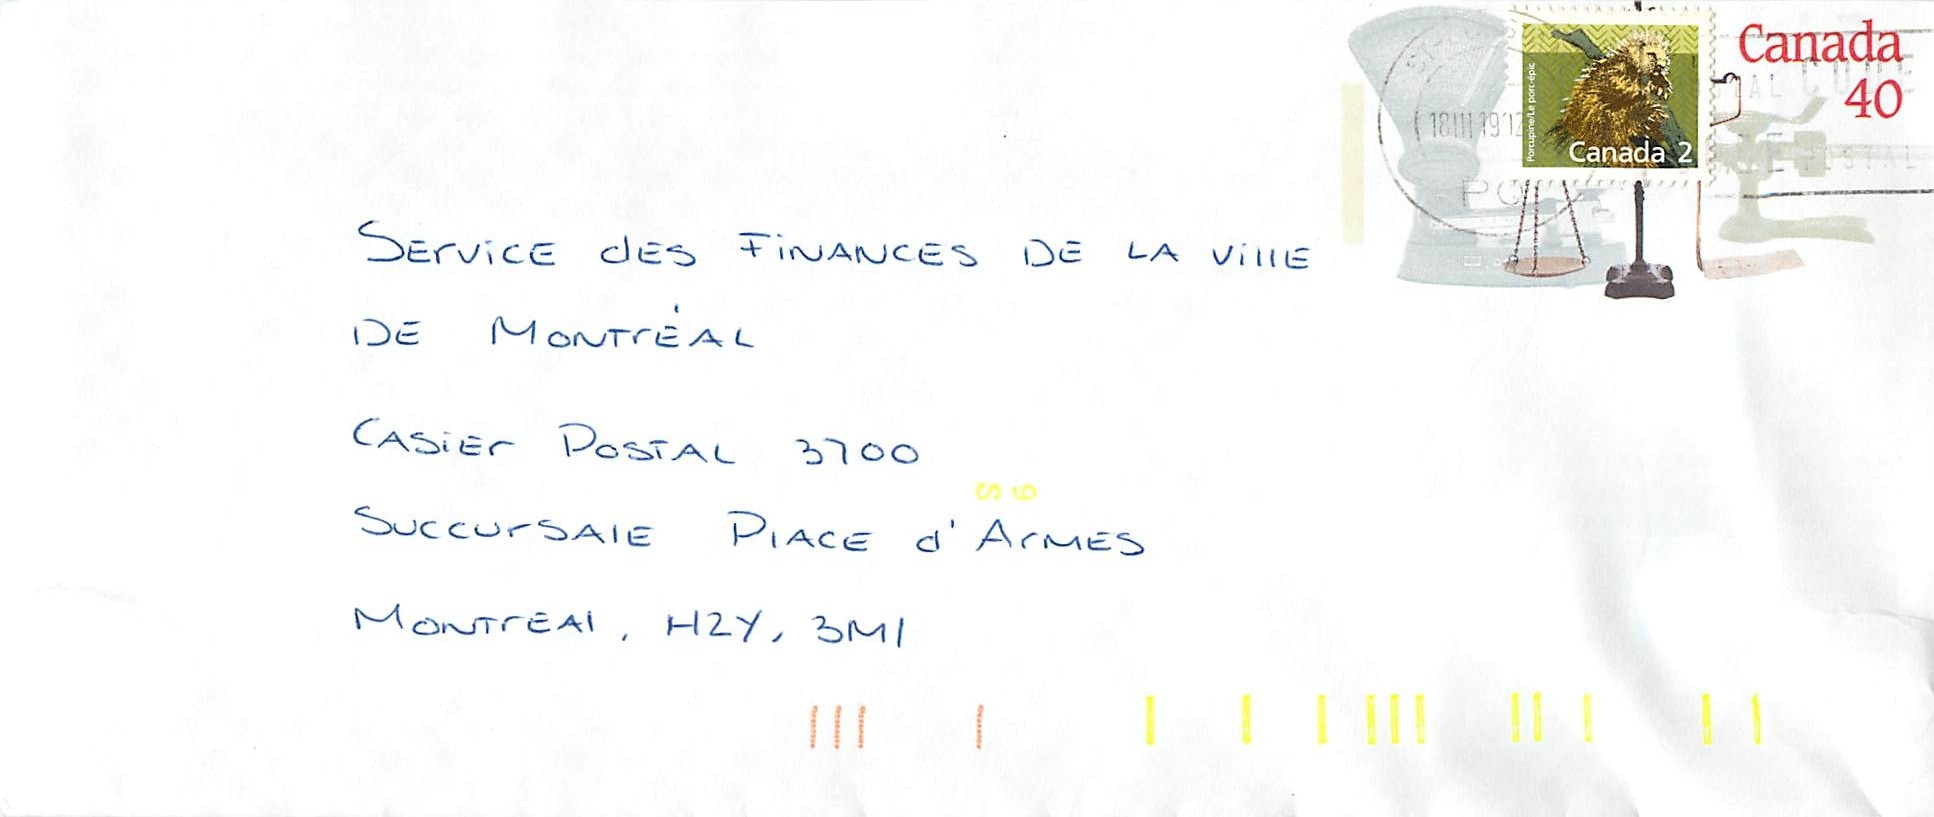 Canada
40
Porcupine/Le porc-épic
Canada 2
POSTAL CODE
CODE POSTAL
SERVICE dES FINANCES DE LA VillE
DE MONTRÉAL
CASIER POSTAL 3700
S 6
SUCCURSAlE PlACE d'ARMES
MONTREAl, H2Y, 3M1